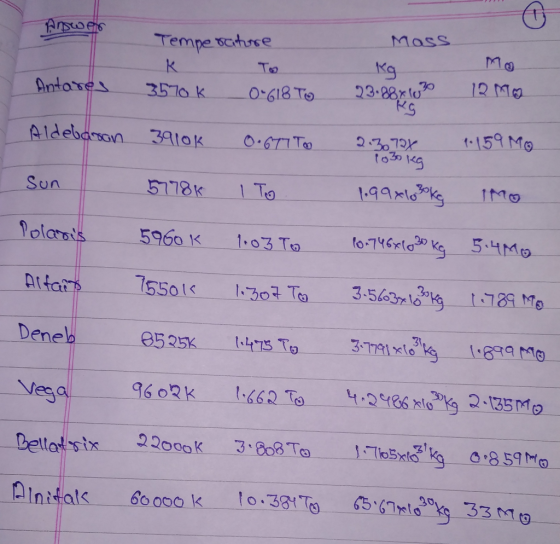 1
Answer
Temperature Mass
K T⊙ Kg M⊙
Antares 3570 K 0.618 T⊙ 23.88×10³⁰ Kg 12 M⊙
Aldebaran 3910K 0.677 T⊙ 2.3072× 10³⁰ Kg 1.159 M⊙
Sun 5778K 1 T⊙ 1.99×10³⁰ Kg 1 M⊙
Polaris 5960 K 1.03 T⊙ 10.746×10³⁰ Kg 5.4 M⊙
Altair 7550 K 1.307 T⊙ 3.5603×10³⁰ Kg 1.789 M⊙
Deneb 8525K 1.475 T⊙ 3.7791×10³¹ Kg 1.899 M⊙
Vega 9602K 1.662 T⊙ 4.2486×10³⁰ Kg 2.135 M⊙
Bellatrix 22000K 3.808 T⊙ 1.7105×10³¹ Kg 0.859 M⊙
Alnitak 60000 K 10.384 T⊙ 65.67×10³⁰ Kg 33 M⊙